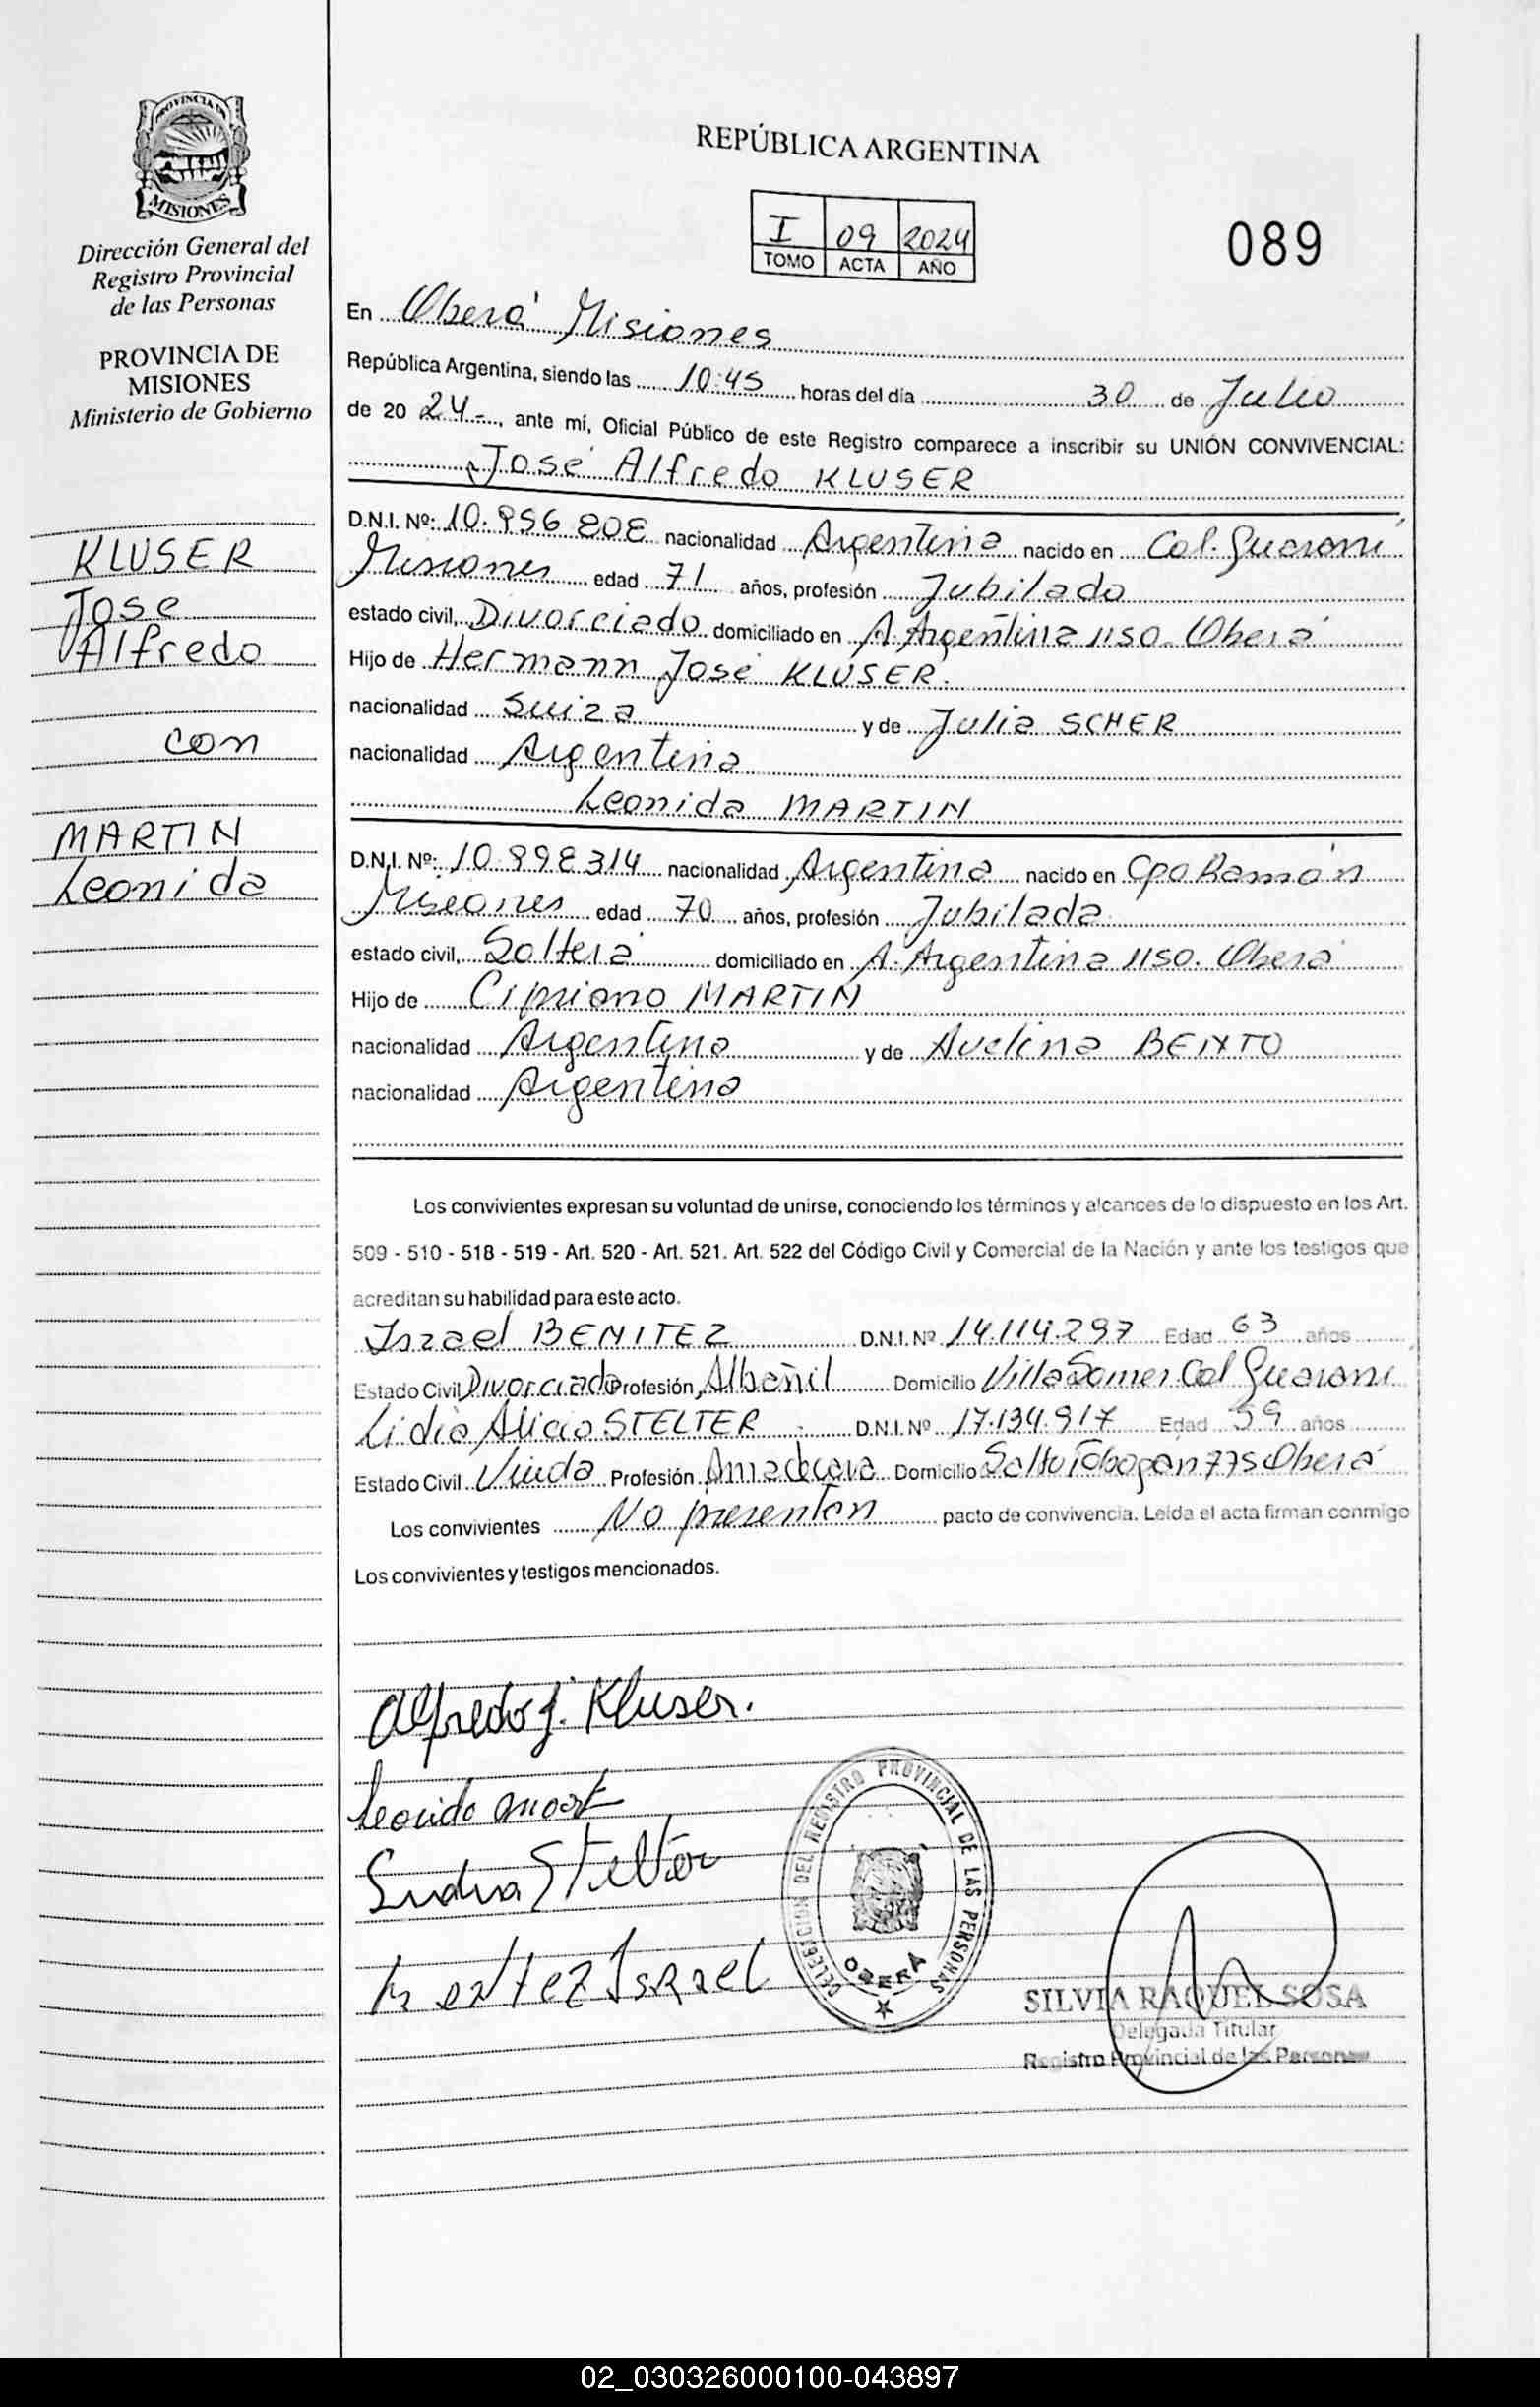 PROVINCIA DE
MISIONES
Dirección General del
Registro Provincial
de las Personas
PROVINCIA DE
MISIONES
Ministerio de Gobierno
KLUSER
Jose
Alfredo
con
MARTIN
Leonida
REPÚBLICA ARGENTINA
I 09 2024
TOMO ACTA AÑO
089
En Oberá Misiones
República Argentina, siendo las 10:45 horas del día 30 de Julio
de 20 24-, ante mí, Oficial Público de este Registro comparece a inscribir su UNIÓN CONVIVENCIAL:
José Alfredo KLUSER
D.N.I. Nº: nacionalidad Argentina nacido en Col. Guaraní
Misiones edad 71 años, profesión Jubilado
estado civil, Divorciado domiciliado en A. Argentina 1150. Oberá
Hijo de Hermann José KLUSER.
nacionalidad Suiza y de Julia SCHER
nacionalidad Argentina
Leonida MARTIN
D.N.I. Nº: nacionalidad Argentina nacido en Cpo Ramón
Misiones edad 70 años, profesión Jubilada
estado civil, Soltera domiciliado en A. Argentina 1150. Oberá
Hijo de Cipriano MARTIN
nacionalidad Argentina y de Avelina
nacionalidad Argentina
Los convivientes expresan su voluntad de unirse, conociendo los términos y alcances de lo dispuesto en los Art.
509 - 510 - 518 - 519 - Art. 520 - Art. 521. Art. 522 del Código Civil y Comercial de la Nación y ante los testigos que
acreditan su habilidad para este acto.
Israel BENITEZ D.N.I. Nº 14.114.297 Edad 63 años
Estado Civil Divorciado Profesión Albañil Domicilio Villa Somer Col Guaraní
Lidia Alicia STELTER D.N.I. Nº 17.134.917 Edad 59 años
Estado Civil Viuda Profesión Ama de casa Domicilio Salto Tobogan 775 Oberá
Los convivientes No presentan pacto de convivencia. Leída el acta firman conmigo
Los convivientes y testigos mencionados.
Alfredo J. Kluser.
Leonida Mart
Stelter
Israel
DELEGACION DEL REGISTRO PROVINCIAL DE LAS PERSONAS
OBERÁ
SILVIA RAQUEL SOSA
Delegada Titular
Registro Provincial de las Personas
02_030326000100-043897